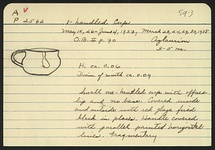 A V
P 2562
593
1-handled Cup
May 15, 26-June 4, 1932, March 23, 24, 29, 1935.
O.B. II p. 90
Aglaurion
H. ca. 0.06
Diam. of mouth ca. 0.09
Small one-handled cup with offset
lip and no base. Covered inside
and outside with red glaze fired
black in places. Handle covered
with parallel painted horizontal
lines. Fragmentary